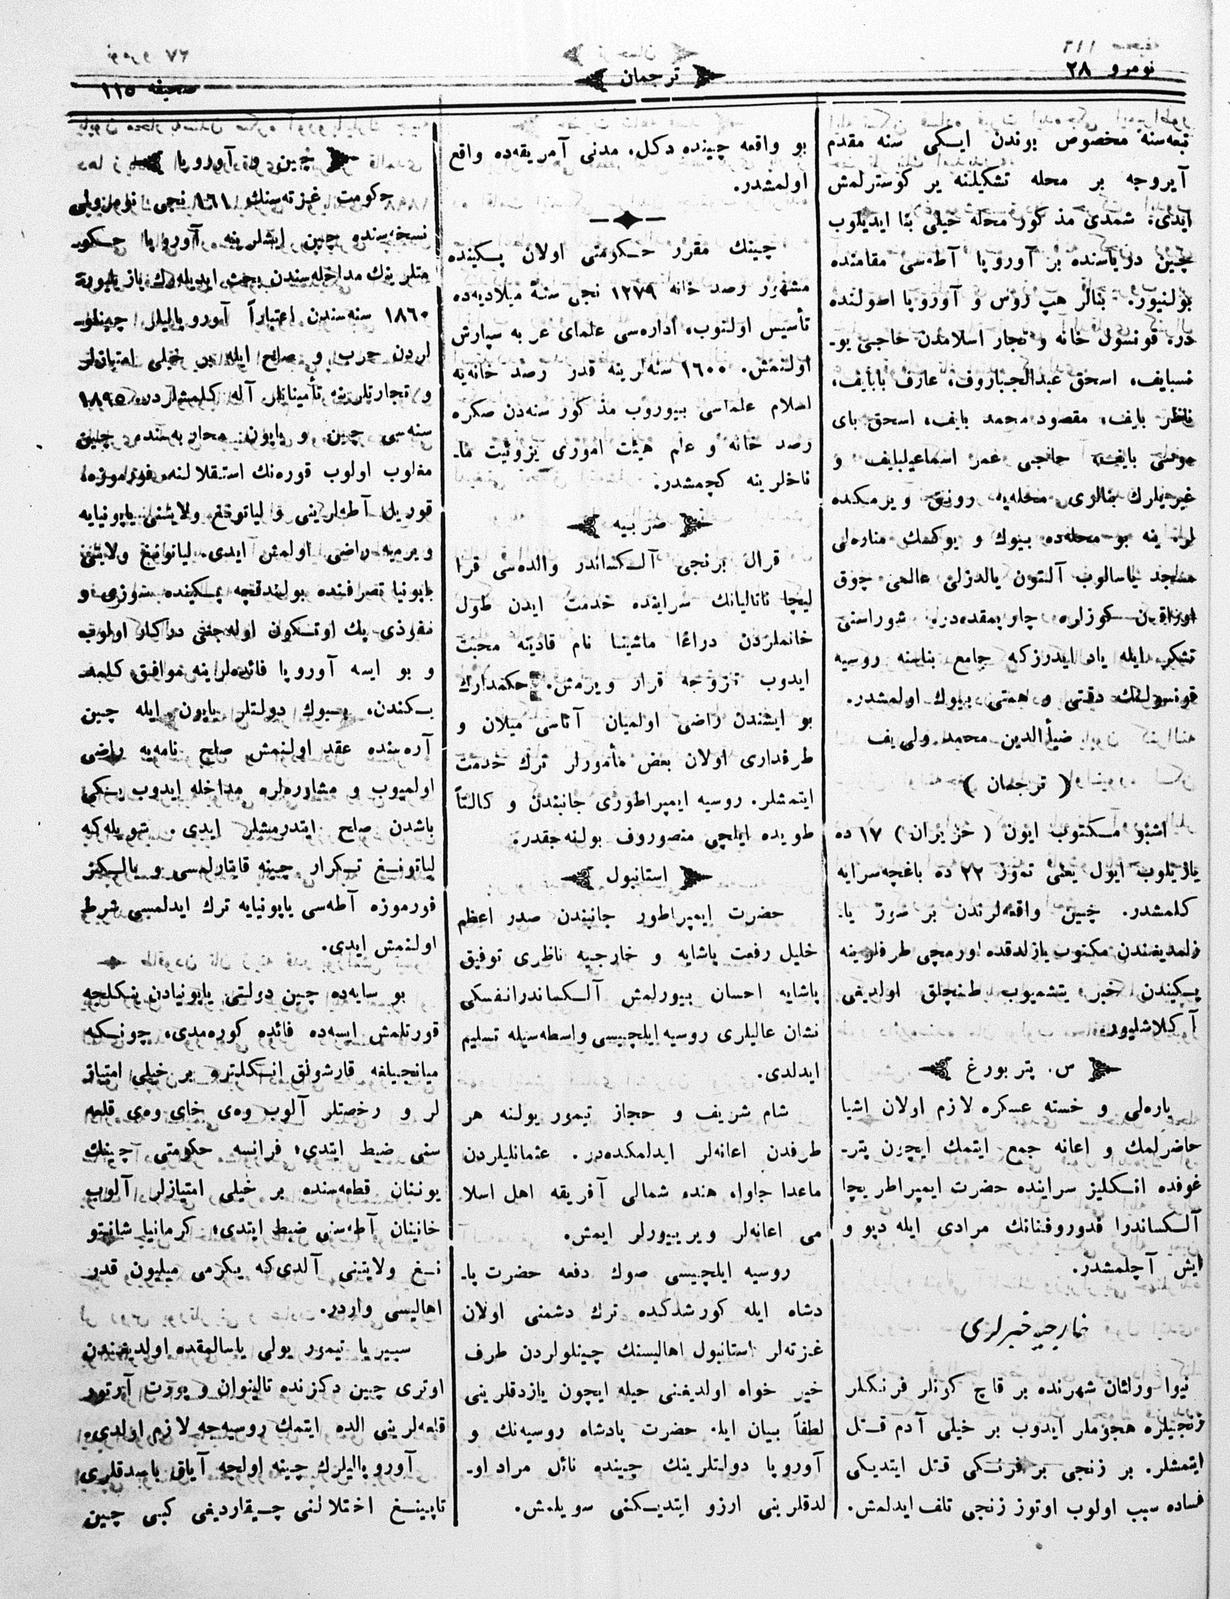 نومرو ٢٨
ترجمان
صحیفه ١١٥
تبعه‌سنه مخصوص بوندن ایکی سنه مقدم
آیروجه بر محله تشکیلنه یر کوسترلمش
ایدی. شمدی مذکور محله خیلی بنا ایدیلوب
چین دریاسنده بر آوروپا آطه‌سی مقامنده
بولنیور. بنالر هپ روس و آوروپا اصولنده
در. قونسول خانه و تجار اسلامدن حاجی بو-
اسحق عبدالجباروف، عارف بابایف،
ناظر بایف، مقصود محمد بایف، اسحق بای
موسی بایف، حاجی عمر اسماعیلبایف و
غیریلرك بنالری محله‌یه رونق ویرمکده
لر. ینه بو محله‌ده بیوك و یوکسك مناره‌لی
مسجد یاسالوب آلتون یالدزلی عالمی چوق
اوزاقدن کوزلره چارپمقده‌در. شوراسنی
تشکر ایله یاد ایدرزکه جامع بناسنه روسیه
قونسولنك دقتی و همتی بیوك اولمشدر.
ضیأالدین محمد ولی یف
( ترجمان )
اشبو مکتوب ایون ( خزیران ) ١٧ ده
یازیلوب ایول یعنی تموز ٢٢ ده باغچه‌سرایه
کلمشدر. چین واقعه‌لرندن بر سوز یا-
زلمدیغندن مکتوب یازلدقده اورمچی طرفلرینه
پکیندن خبر یتشمیوب طنچلق اولدیغی
آکلاشلیور.
س. پتربورغ
یاره‌لی و خسته عسکره لازم اولان اشیا
حاضرلمك و اعانه جمع ایتمك ایچون پتر-
غوفده انکلیز سراینده حضرت ایمپراطریچا
آلکساندرا فدوروفنانك مرادی ایله دیو و
ایش آچلمشدر.
خارجیه خبرلری
نیوا ورلئان شهرنده بر قاچ کونلر فرنکلر
زنجیلره هجوملر ایدوب بر خیلی آدم قتل
ایتمشلر. بر زنجی بر فرنکی قتل ایتدیکی
فساده سبب اولوب اوتوز زنجی تلف ایدلمش.
بو واقعه چینده دکل، مدنی آمریقه‌ده واقع
اولمشدر.
چینك مقرر حکومتی اولان پکینده
مشهور رصد خانه ١٢٧٩ نجی سنۀ میلادیه‌ده
تأسیس اولنوب، اداره‌سی علمای عر به سپارش
اولنمش. ١٦٠٠ سنه‌لرینه قدر رصد خانه‌یه
اسلام علماسی بیوروب مذکور سنه‌دن صکره
رصد خانه و علم هیئت اموری یزوئیت مأ-
ناخلرینه کچمشدر.
صربیه
قرال برنجی آلکساندر والده‌سی قرا
لیچا ناتالیانك سراینده خدمت ایدن طول
خانملردن دراغا ماشینا نام قادینه محبت
ایدوب تزوجه قرار ویرمش. حکمدارك
بو ایشندن راضی اولمیان آتاسی میلان و
طرفداری اولان بعض مأمورلر ترك خدمت
ایتمشلر. روسیه ایمپراطوری جانبندن و کالتاً
طویده ایلچی منصوروف بولنه‌جقدر.
استانبول
حضرت ایمپراطور جانبندن صدر اعظم
خلیل رفعت پاشایه و خارجیه ناظری توفیق
پاشایه احسان بیورلمش آلکساندرانفسکی
نشان عالیلری روسیه ایلچیسی واسطه‌سیله تسلیم
ایدلدی.
شام شریف و حجاز تیمور یولنه هر
طرفدن اعانه‌لر ایدلمکده‌در. عثمانلیلردن
ماعدا جاواه هنده شمالی آفریقه اهل اسلا
می اعانه‌لر ویریپورلر ایمش.
روسیه ایلچیسی صوك دفعه حضرت پا-
دشاه ایله کورشدکده ترك دشمنی اولان
غزته‌لر استانبول اهالیسنك چینلولردن طرف
خیر خواه اولدیغنی حیله ایچون یازدقلرینی
لطفاً بیان ایله حضرت پادشاه روسیه‌نك و
آوروپا دولتلرینك چینده نائل مراد او-
لدقلرینی ارزو ایتدیکنی سویلمش.
چین و آوروپا
حکومت غزته‌سنك ١٦١ نجی نومرولی
نسخه‌سنده چین ایشلرینه آوروپا حکو-
متلرینك مداخله‌سندن بحث ایدیله‌رك یازیلیورکه
١٨٦٠ سنه‌سندن اعتباراً آوروپالیلر چینلو-
لردن حرب و صلح ایله بر خیلی امتیازلر
و تجارتلرینه تأمیناتلر آله کلمشلردر. ١٨٩٥
سنه‌سی چین و یاپون محاربه‌سندی چین
مغلوب اولوب قوره‌نك استقلالنه، فورموزه،
قوریل آطه‌لرینی و لیاتونغ ولایتنی یاپونیایه
ویرمیه راضی اولمش ایدی. لیاتونغ ولایتی
یاپونیا تصرفنده بولندقچه پکینده سوزی و
نفوذی پك اوتکون اوله‌جغی درکار اولوب
و بو ایسه آوروپا فائده‌لرینه موافق کلمه-
یکندن، بیوك دولتلر یاپون ایله چین
آره‌سنده عقد اولنمش صلح نامه‌یه راضی
اولمیوب و مشاوره‌لره مداخله ایدوب یکی
باشدن صلح ایتدرمشلر ایدی. شویله‌که
لیاتونغ تکرار چینه قایتارلمسی و یالکز
فورموزه آطه‌سی یاپونیایه ترك ایدلمسی شرط
اولنمش ایدی.
بو سایه‌ده چین دولتی یاپونیادن
قورتلمش ایسه‌ده فائده کوره‌مدی، چونکه
میانجیلغه قارشولق انکلیترو بر خیلی امتیاز
لر و رخصتلر آلوب وه‌ی خای وه‌ی قلعه
سنی ضبط ایتدی؛ فرانسه حکومتی چینك
یوننان قطعه‌سنده بر خیلی امتیازلر آلوب
خائینان آطه‌سنی ضبط ایتدی؛ کرمانیا شانتو
نغ ولایتنی آلدی‌که یکرمی میلیون قدر
اهالیسی واردر.
سیبریا تیمور یولی یاسالمقده اولدیغندن
اوتری چین دکزنده تالینوان و پورت آرتور
قلعه‌لرینی الده ایتمك روسیه‌جه لازم اولدی.
آوروپالیلرك چینه اولجه آیاق باسدقلری
تایپینغ اختلالنی چیقاردیغی کبی چین